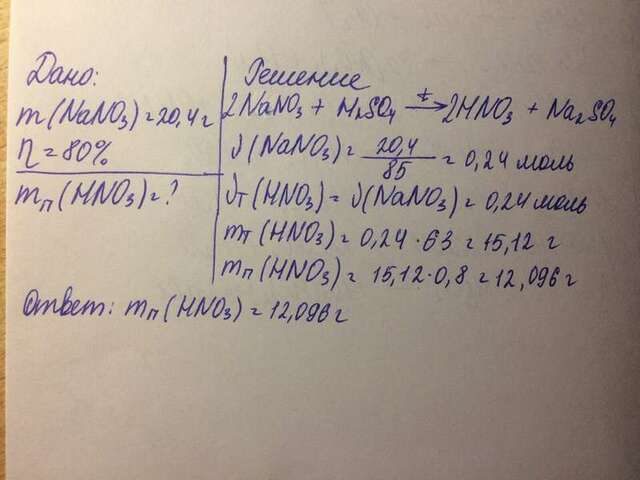 Дано:
m(NaNO₃)=20,4г
η=80%
mп(HNO₃)=?
Решение
2NaNO₃ + H₂SO₄ →t 2HNO₃ + Na₂SO₄
ν(NaNO₃)= 20,4/85 = 0,24 моль
νт(HNO₃)= ν(NaNO₃)= 0,24 моль
mт(HNO₃)= 0,24·63=15,12 г
mп(HNO₃)= 15,12·0,8=12,096г
Ответ: mп(HNO₃)=12,096г